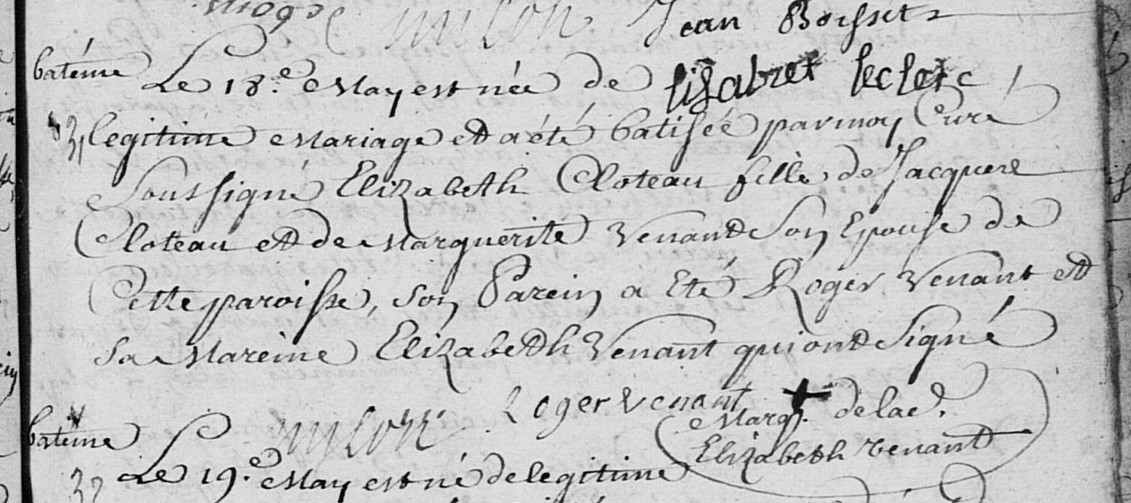 milon Jean Boisset
batême Le 18.e May est née de lisabzet leclerc
31 legitime Mariage et a été batisée par moy Curé
Soussigné Elizabeth Cloteau fille de Jacques
Cloteau et de Marguerite Venant son Epouse de
Cette paroisse, son Parein a été Roger Venant et
sa Mareine Elizabeth Venant qui ont signé
milon Roger venant Marq. de lad.
Elizabeth Venant
batême Le 19.e May est né de legitime
32